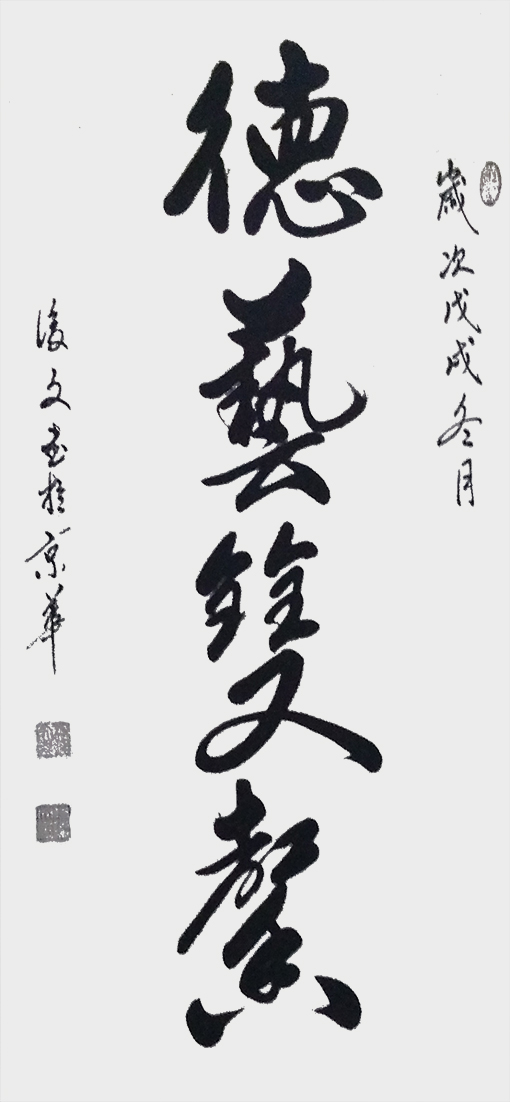 歲次戊戌冬月
德藝雙馨
俊文書於京華